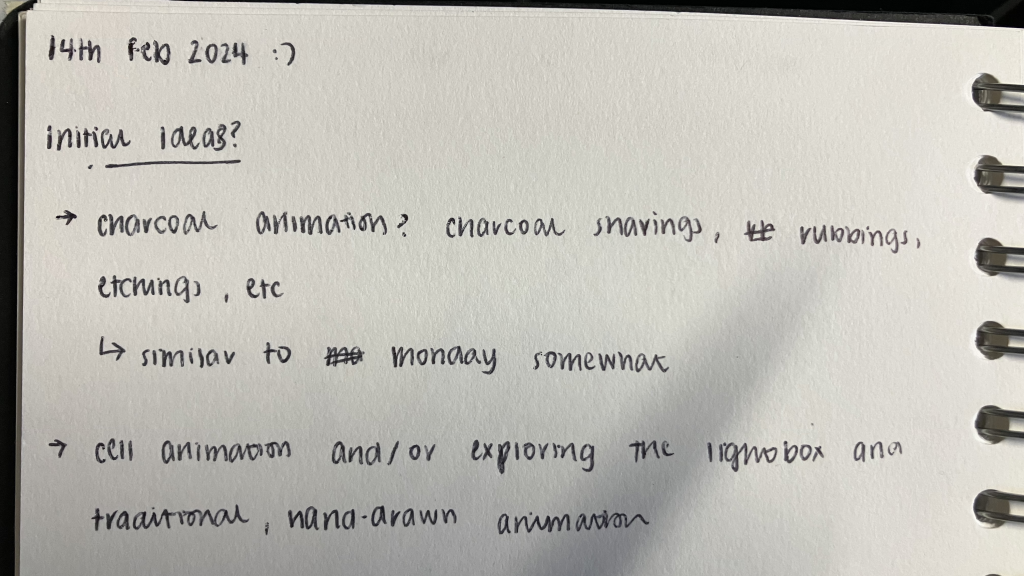 14th Feb 2024 :)
initial ideas?
→ charcoal animation? charcoal shavings, rubbings,
etchings, etc
↳ similar to monday somewhat
→ cell animation and/or exploring the lightbox and
traditional, hand-drawn animation